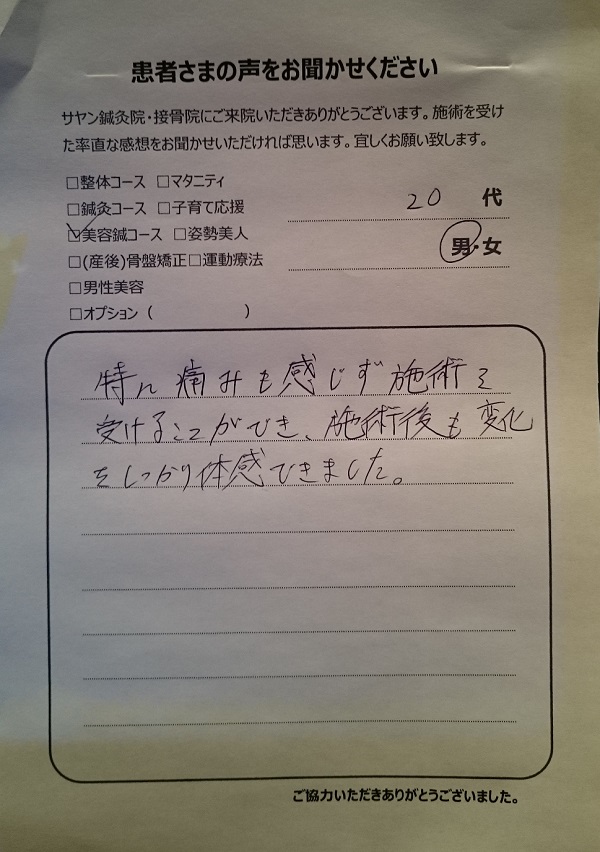 患者さまの声をお聞かせください
サヤン鍼灸院・接骨院にご来院いただきありがとうございます。施術を受け
た率直な感想をお聞かせいただければ思います。宜しくお願い致します。
□整体コース □マタニティ
□鍼灸コース □子育て応援
20 代
☑美容鍼コース □姿勢美人
男・女
□(産後)骨盤矯正□運動療法
□男性美容
□オプション ( )
特に痛みも感じず施術を
受けることができ、施術後も変化
をしっかり体感できました。
ご協力いただきありがとうございました。